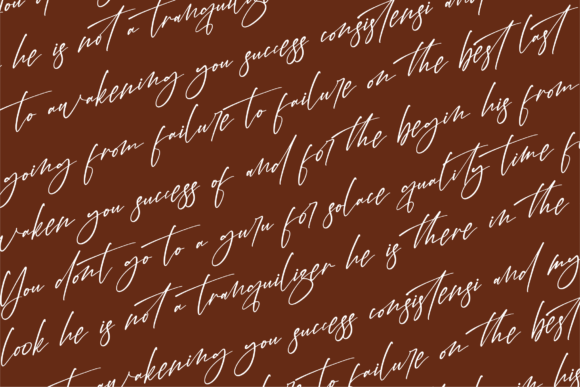 You dont go to a
he is not a tranquilizer
to awakening you success consistensi and
going from failure to failure on the best last
waken you success of and for the begin his from
You dont go to a guru for solace quality time f
look he is not a tranquilizer he is there in the
to awakening you success consistensi and my
to failure on the best
in his